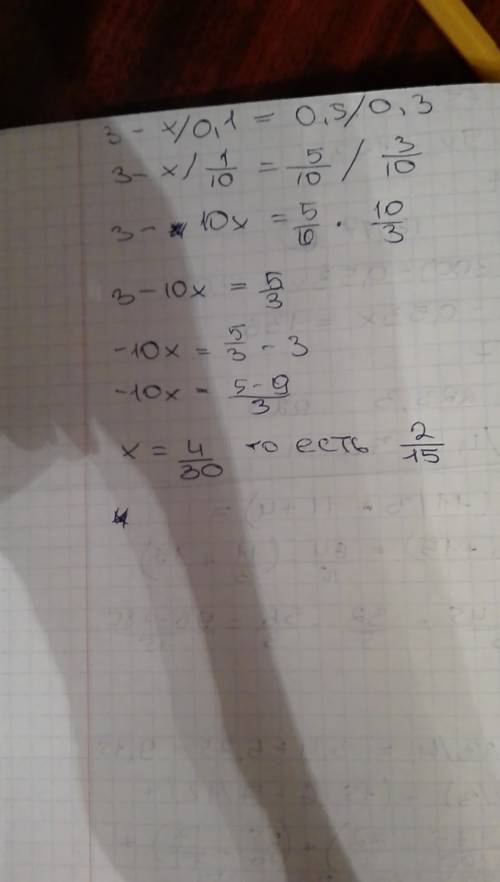 3 - x/0,1 = 0,5/0,3
3 - x/ 1/10 = 5/10 / 3/10
3 - 10x = 5/10 · 10/3
3 - 10x = 5/3
-10x = 5/3 - 3
-10x = 5-9/3
x = 4/30 то есть 2/15